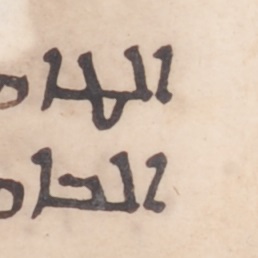 الها
الحا